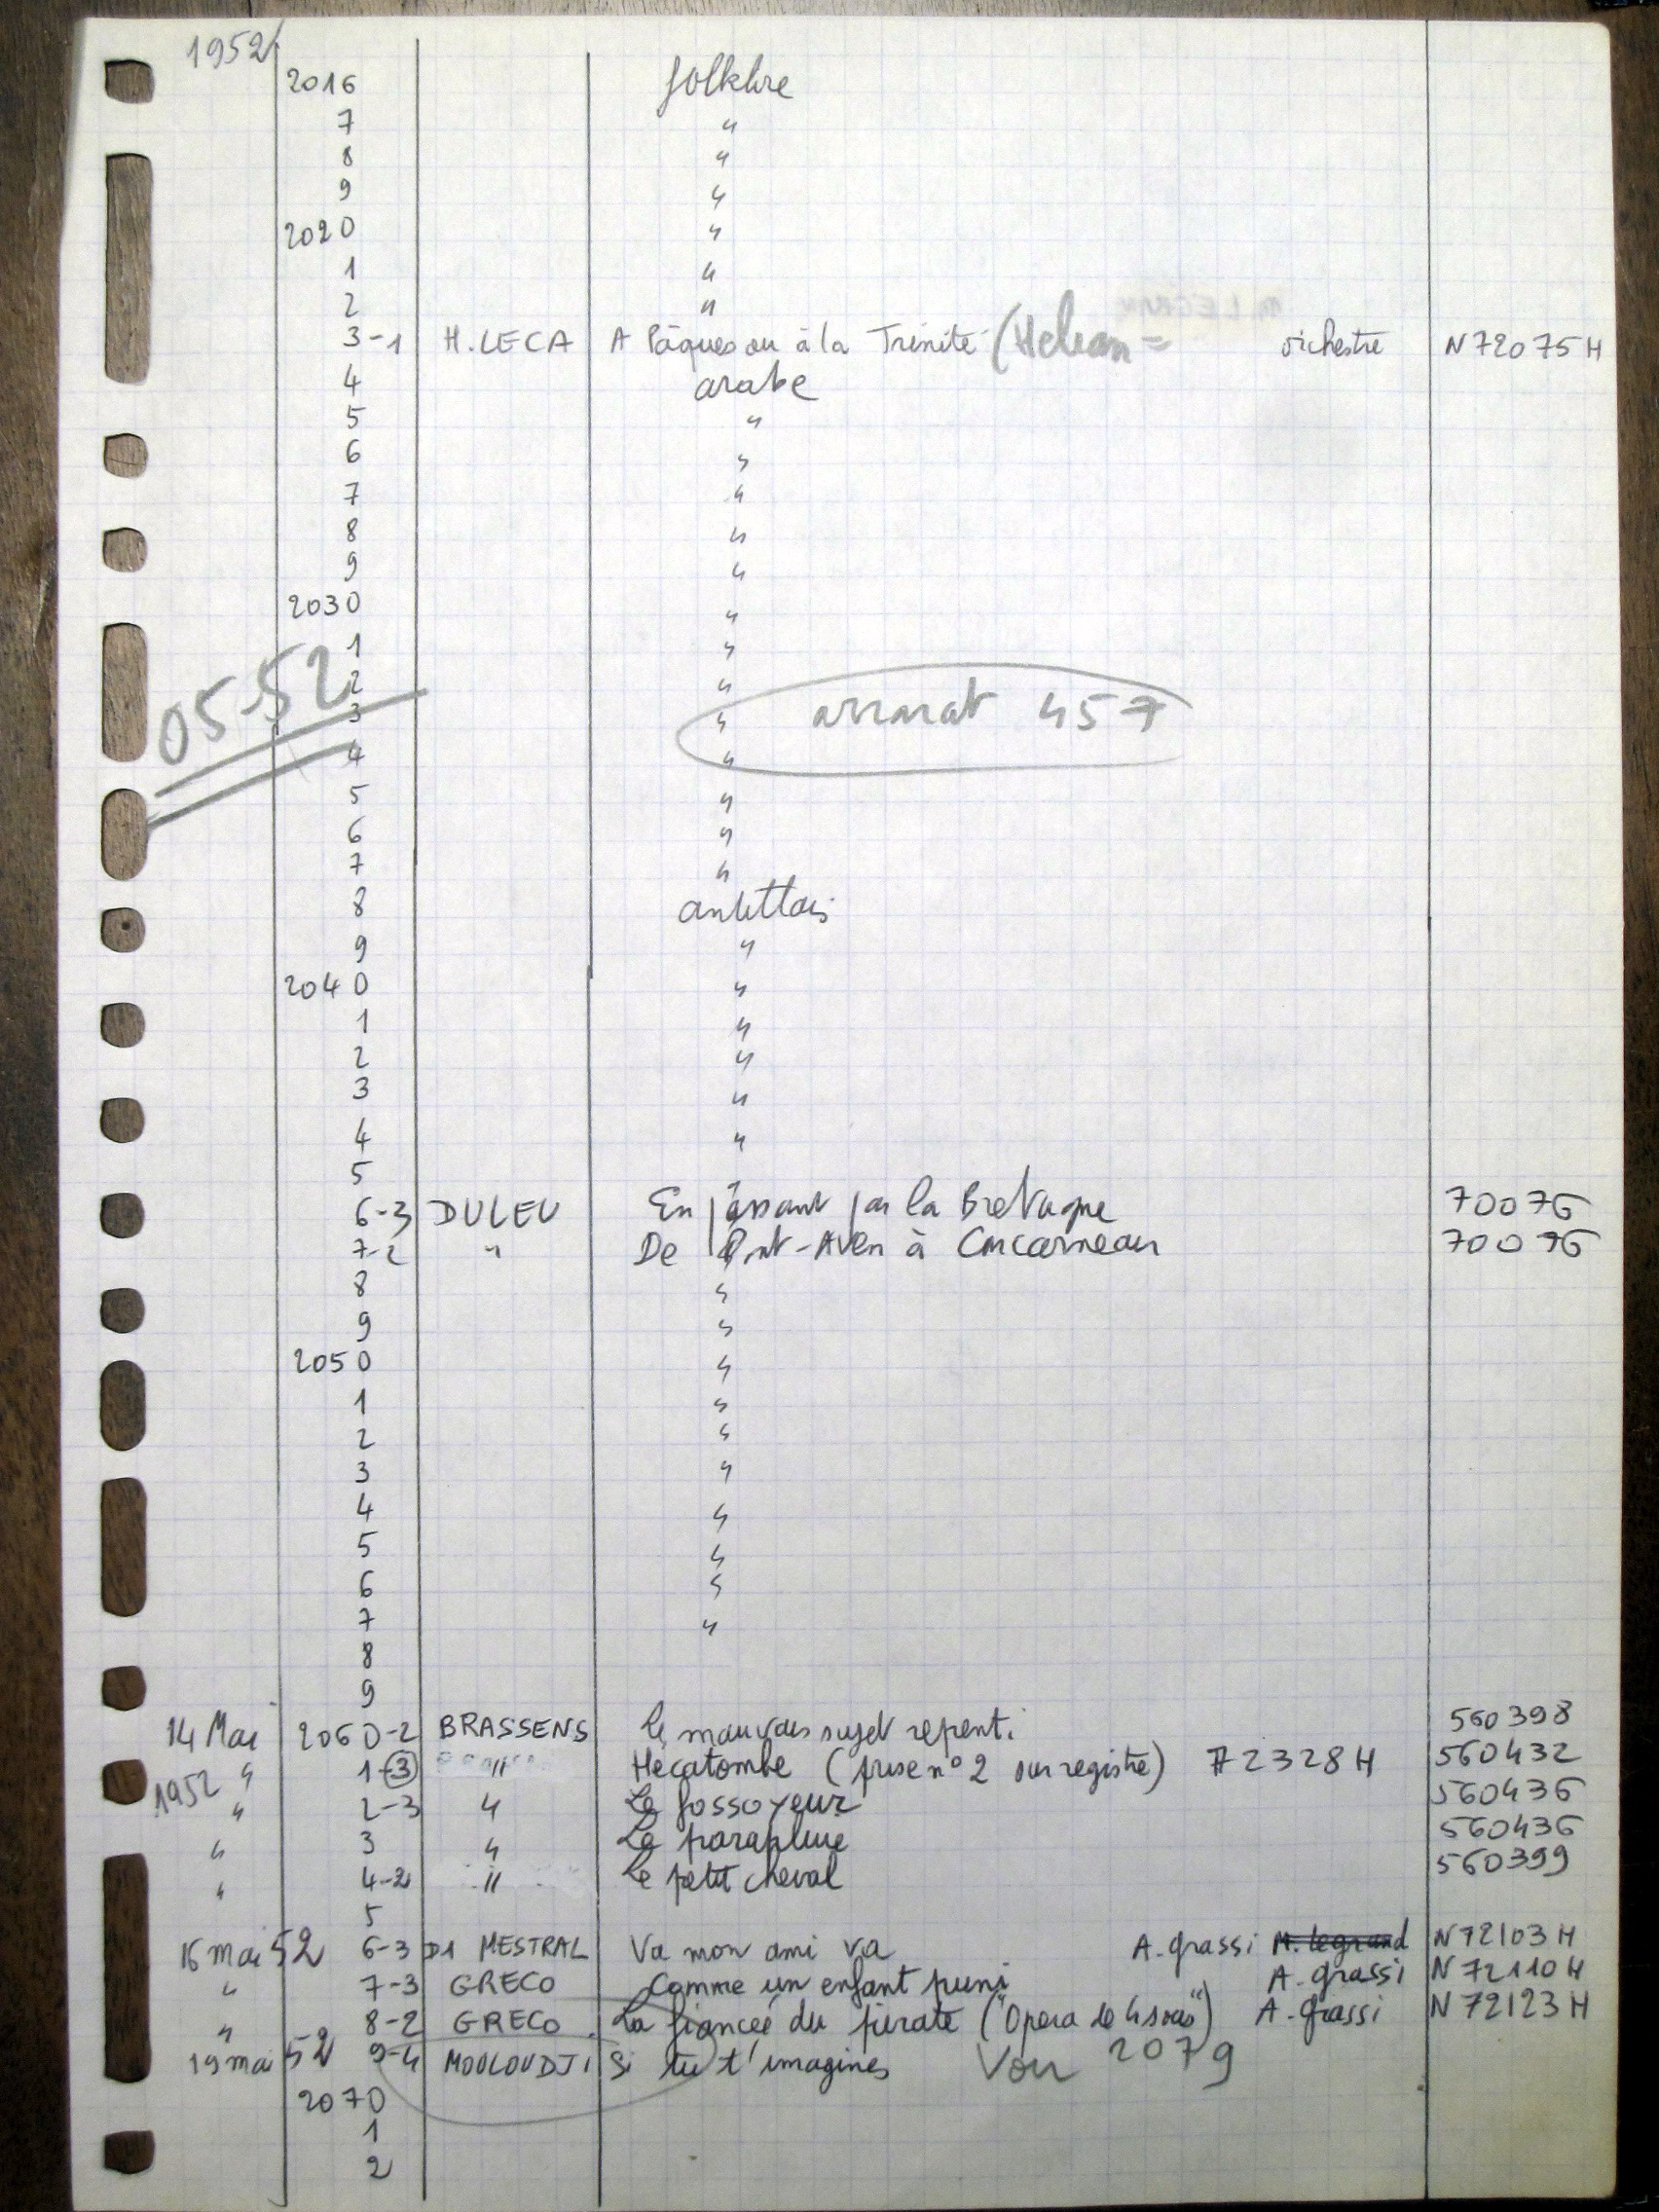 1952
2016 folklore
7 "
8 "
9 "
2020 "
1 "
2 "
3-1 H. LECA A Pâques ou à la Trinité (Helian = orchestre N72075H
4 arabe
5 "
6 "
7 "
8 "
9 "
2030 "
1 "
05-52 2 "
3 " arrarat 457
4 "
5 "
6 "
7 "
8 antillais
9 "
2040 "
1 "
2 "
3 "
4 "
5
6-3 DULEU En passant par la Bretagne 70076
7-2 " De Pont-Aven à Concarneau 70076
8 "
9 "
2050 "
1 "
2 "
3 "
4 "
5 "
6 "
7 "
8
9
14 Mai 2060-2 BRASSENS Le mauvais sujet repenti 560398
1952 " 1-3 " Hecatombe (prise n° 2 sur registre) 72328H 560432
" 2-3 " Le fossoyeur 560436
" 3 " Le parapluie 560436
" 4-2 " Le petit cheval 560399
5
16 mai 52 6-3 D1 MESTRAL Va mon ami va A. grassi M. legrand N72103H
" 7-3 GRECO Comme un enfant puni A. grassi N72110H
" 8-2 GRECO La fiancée du pirate ("Opera de 4 sous") A. grassi N72123H
19 mai 52 9-4 MOULOUDJI Si tu t'imagines Voir 2079
2070
1
2